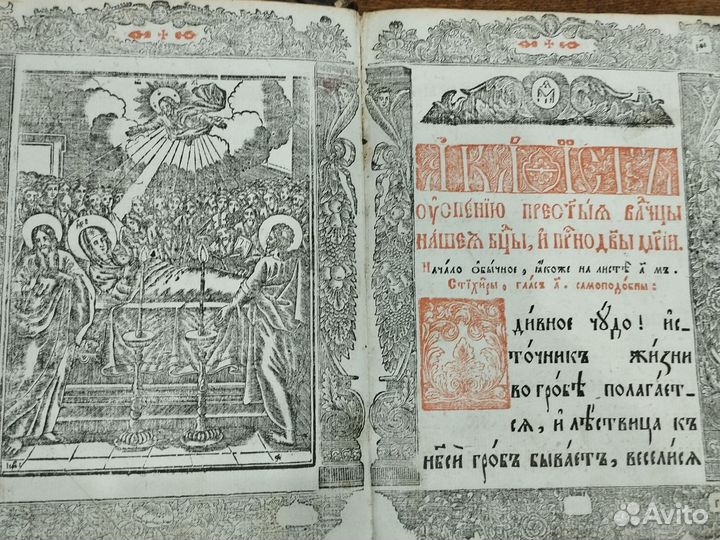 АКАѲИСТЪ
оуспе́нїю прест҃ы́ѧ влⷣчцы
на́шеѧ бц҃ы, и҆ прⷭ҇нодв҃ы мр҃і́и.
Нача́ло ѻ҆бы́чное, ꙗ҆́коже на листѣ̀ а҃ мъ.
Стїхи̑ры, гла́съ а҃. самоподо́бны:
ди́вное чꙋ́до! и҆с-
то́чникъ жи́зни
во гро́бѣ полага́ет-
сѧ, и҆ лѣ́ствица къ
нб҃сѝ гро́бъ быва́етъ, весели́сѧ
Avito